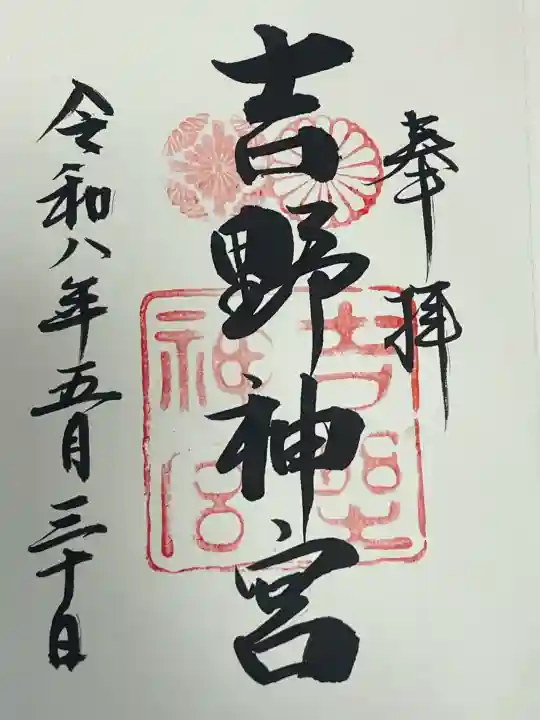 奉拝
吉野神宮
吉野
神宮
令和八年五月三十日